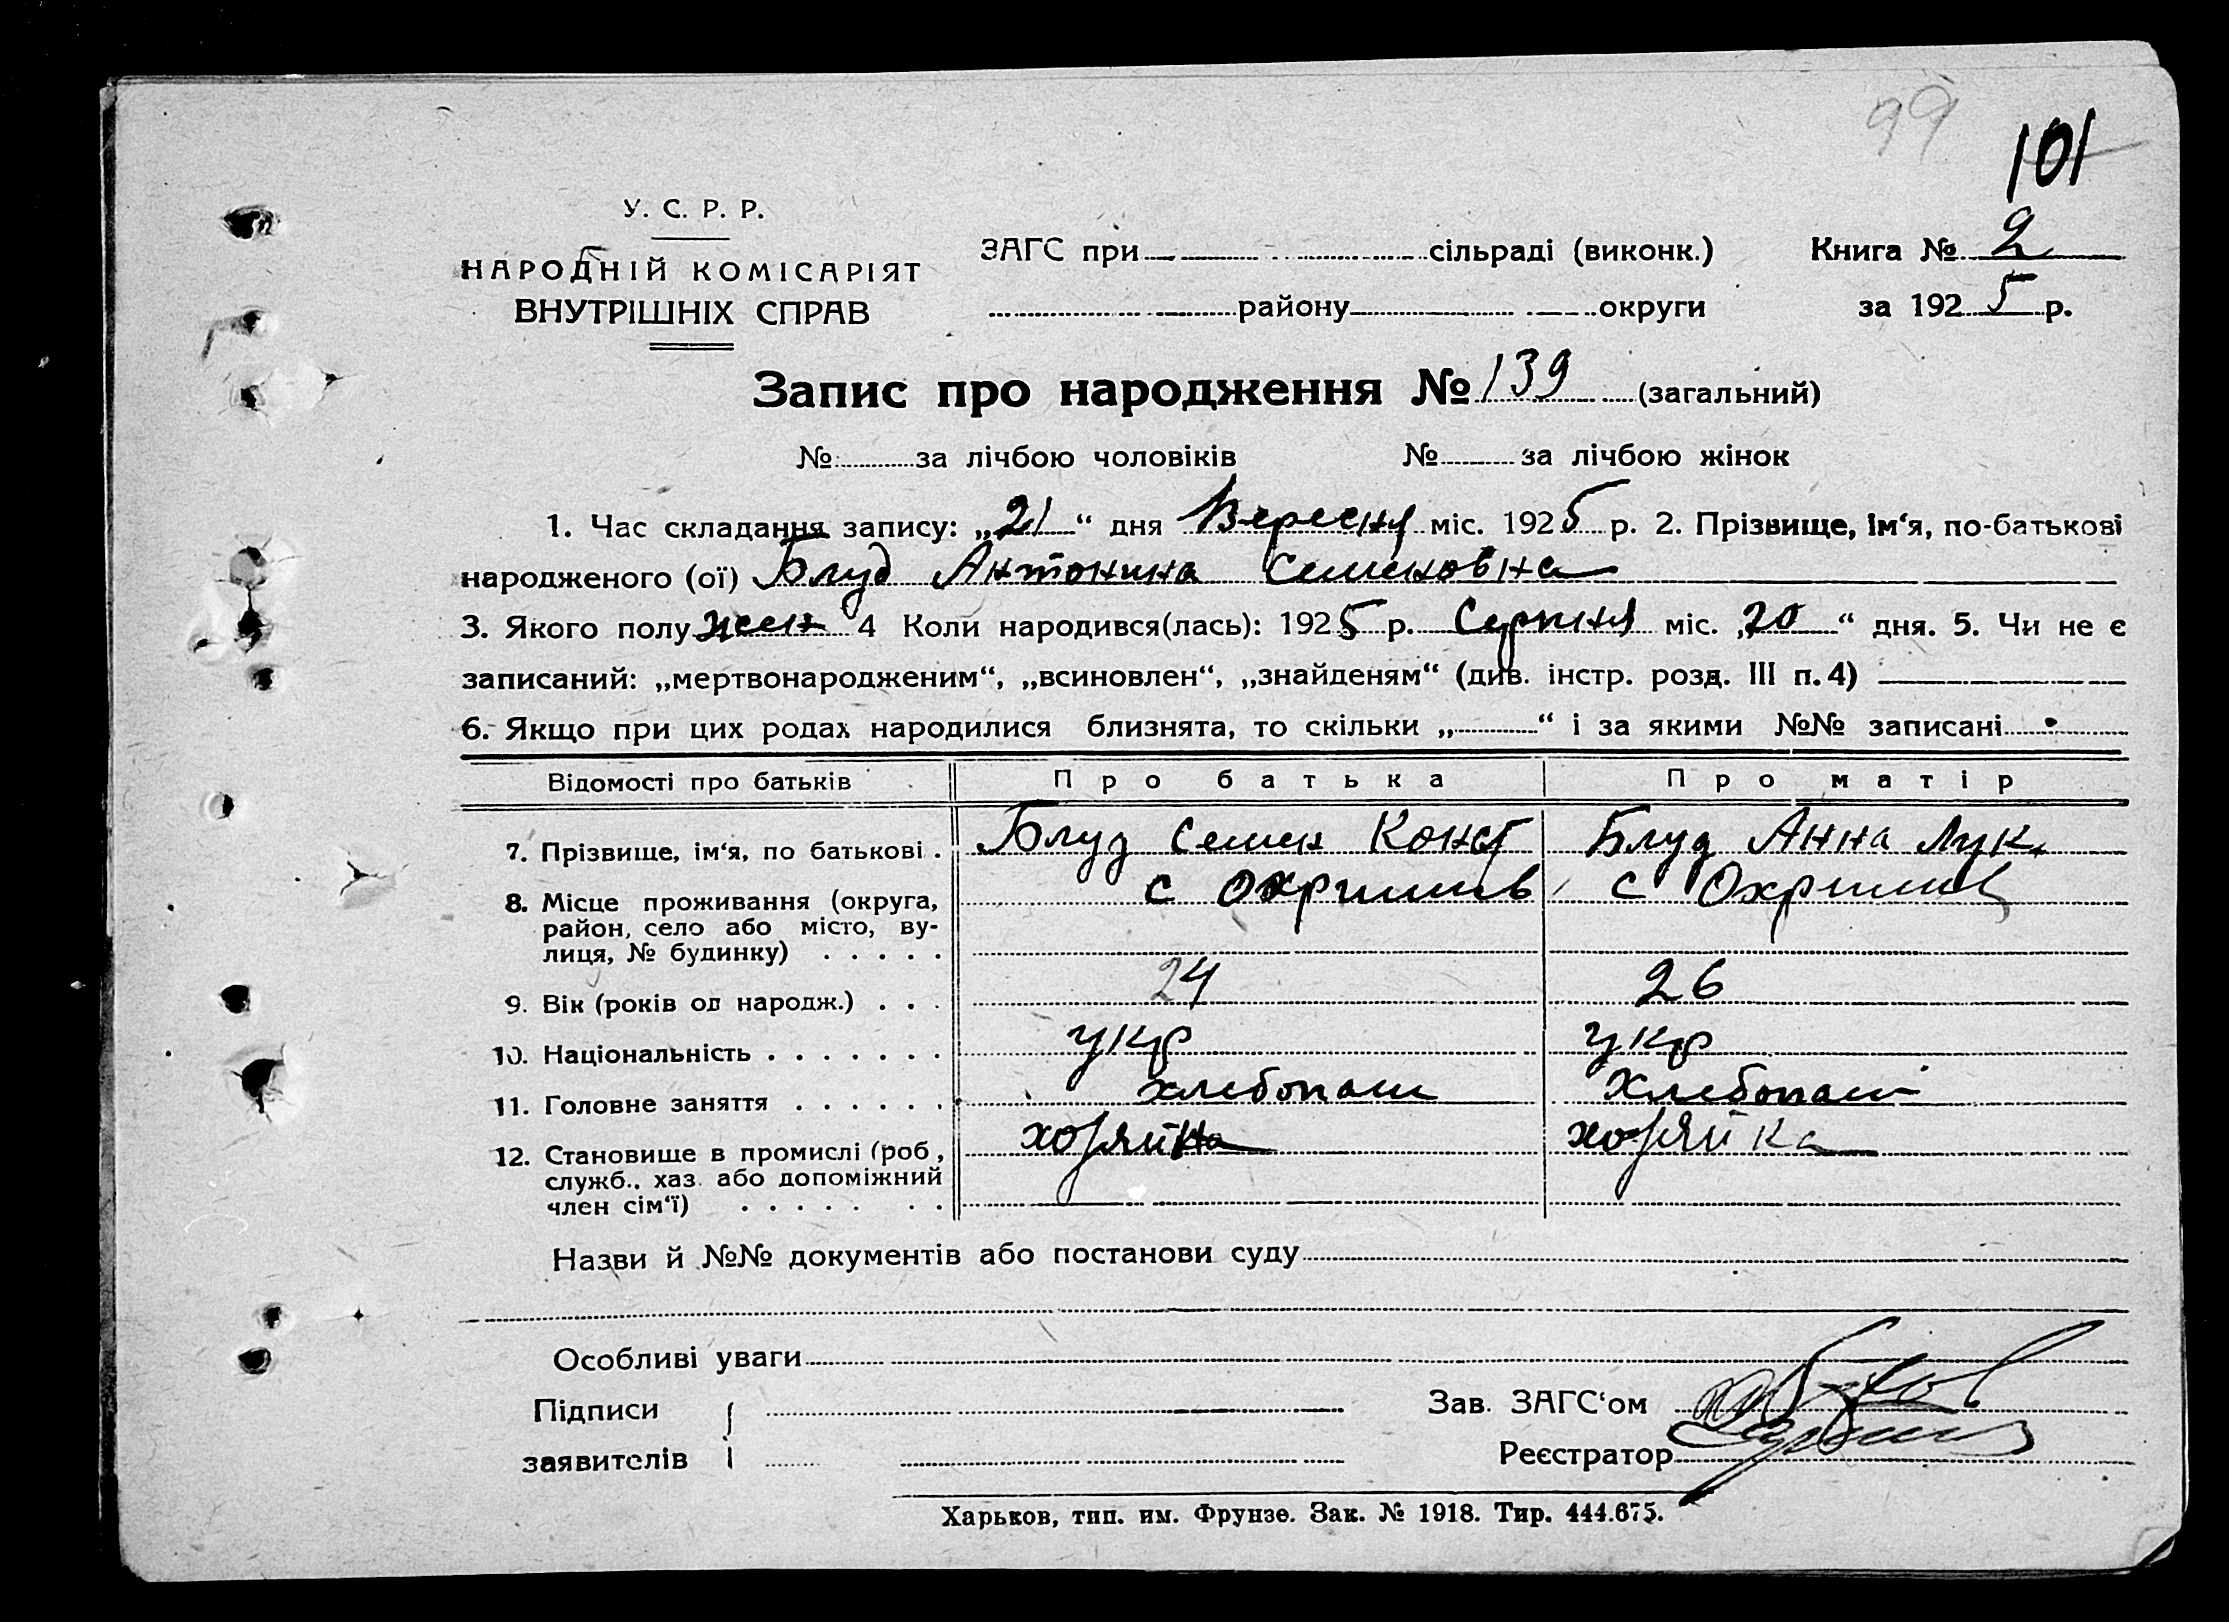 99
101
У. С. Р. Р.
НАРОДНІЙ КОМІСАРІЯТ
ВНУТРІШНІХ СПРАВ
ЗАГС при сільраді (виконк.) Книга № 2
району округи за 1925 р.
Запис про народження № 139 (загальний)
№ за лічбою чоловіків № за лічбою жінок
1. Час складання запису: „21“ дня Вересня міс. 1925 р. 2. Прізвище, ім‘я, по-батькові
народженого (ої) Блуд Антонина Семеновна
3. Якого полу жен 4 Коли народився(лась): 1925 р. Серпня міс. „20“ дня. 5. Чи не є
записаний: „мертвонародженим“, „всиновлен“, „знайденям“ (див. інстр. розд. III п. 4)
6. Якщо при цих родах народилися близнята, то скільки „ “ і за якими №№ записані
Відомості про батьків Про батька Про матір
7. Прізвище, ім‘я, по батькові . Блуд Семен Конст Блуд Анна Лук.
8. Місце проживання (округа, с Охримів с Охримів
район, село або місто, ву-
лиця, № будинку) . . . . .
9. Вік (років од народж.) . . . 24 26
10. Національність . . . . . . . укр укр
11. Головне заняття . . . . . . хлебопаш хлебопаш
12. Становище в промислі (роб , хозяйка хозяйка
служб., хаз. або допоміжний
член сім‘ї) . . . . . . .
Назви й №№ документів або постанови суду
Особливі уваги
Підписи Зав. ЗАГС‘ом
заявителів Реєстратор
Харьков, тип. им. Фрунзе. Зак. № 1918. Тир. 444.675.